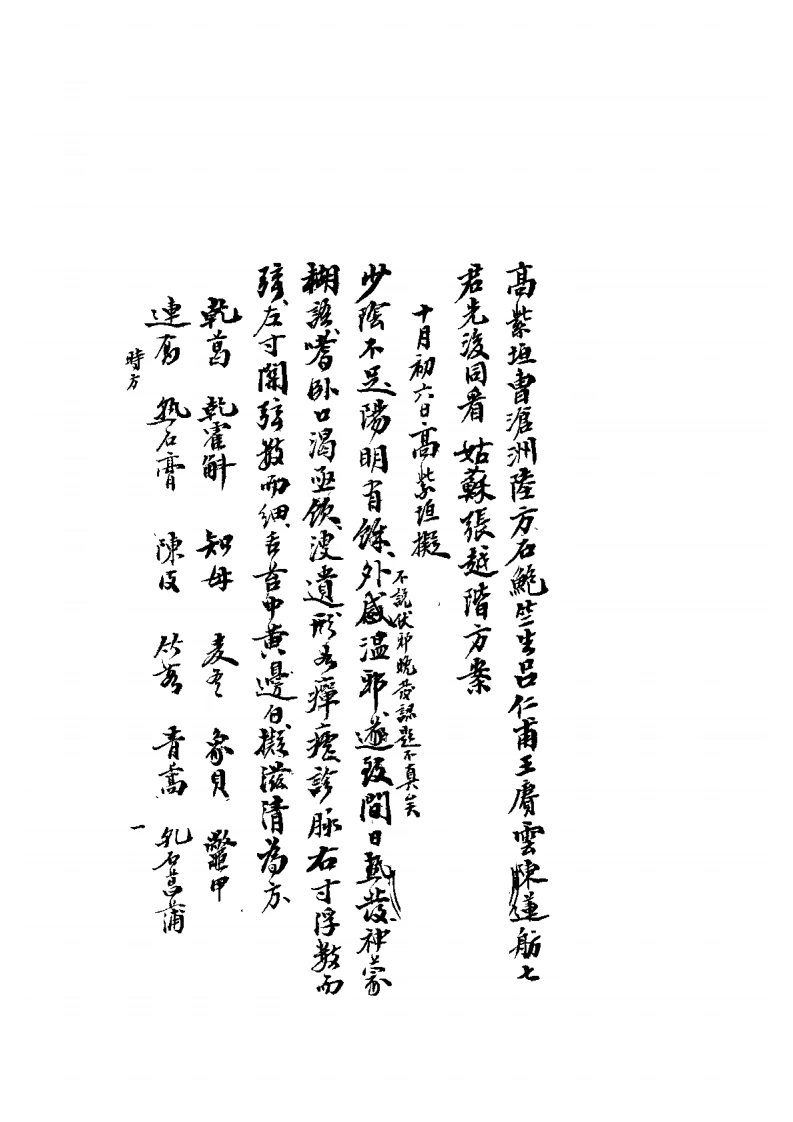 高紫垣曹滄洲陸方石鮑竺生呂仁甫王賡雲陳蓮舫七
君先後同看姑蘇張越階方案
十月初六日高紫垣擬
不說伏邪晚發認題不真矣
少陰不足陽明有餘外感溫邪遂致間日熱發神蒙
糊語嗜卧口渴亟飲溲遺形爲癉瘧診脉右寸浮數而
弦左寸關弦數而細舌苔中黃邊白擬滋清爲方
乾葛 乾霍斛 知母 麦冬 象貝 鱉甲
連翹 熟石膏 陳皮 竹茹 青蒿 乳石菖蒲
時方
一